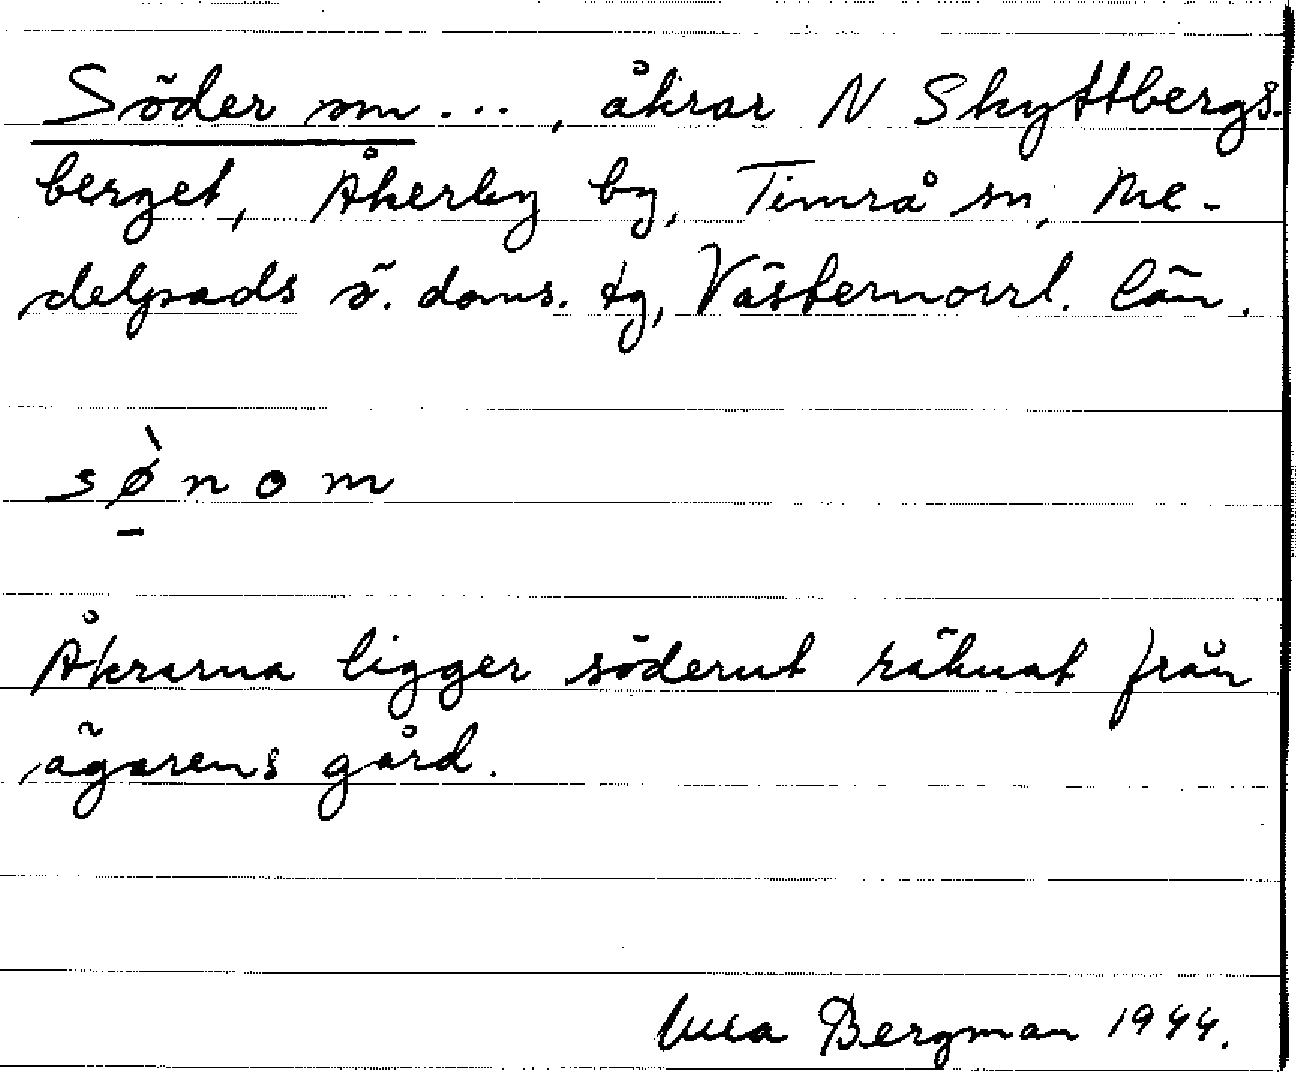 Söder om ..., åkrar N Skyttbergs-
berget, Åkerby by, Timrå sn, Me-
delpads ö. doms. tg, Västernorrl. län.
sø̠̀nom
Åkrarna ligger söderut räknat från
ägarens gård.
Bergman 1944.